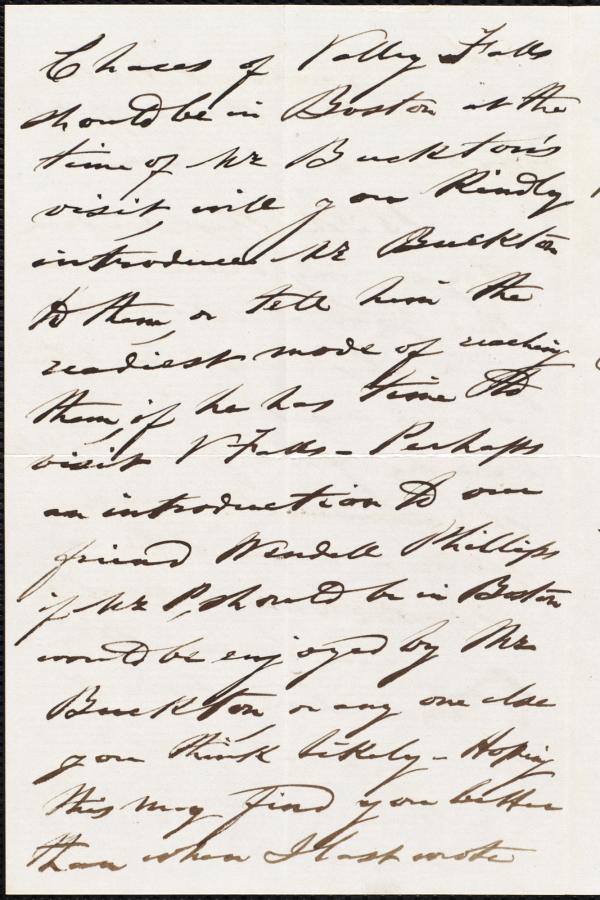 Chases of Valley Falls
should be in Boston at the
time of Mr Buckton's
visit, will you kindly
introduce Mr Buckton
to them, or tell him the
readiest mode of reaching
them, if he has time to
visit V Falls - Perhaps
an introduction to our
friend Wendell Phillips
if Mr P, should be in Boston
would be enjoyed by Mr
Buckton, or any one else
you think likely - Hoping
this may find you better
than when I last wrote